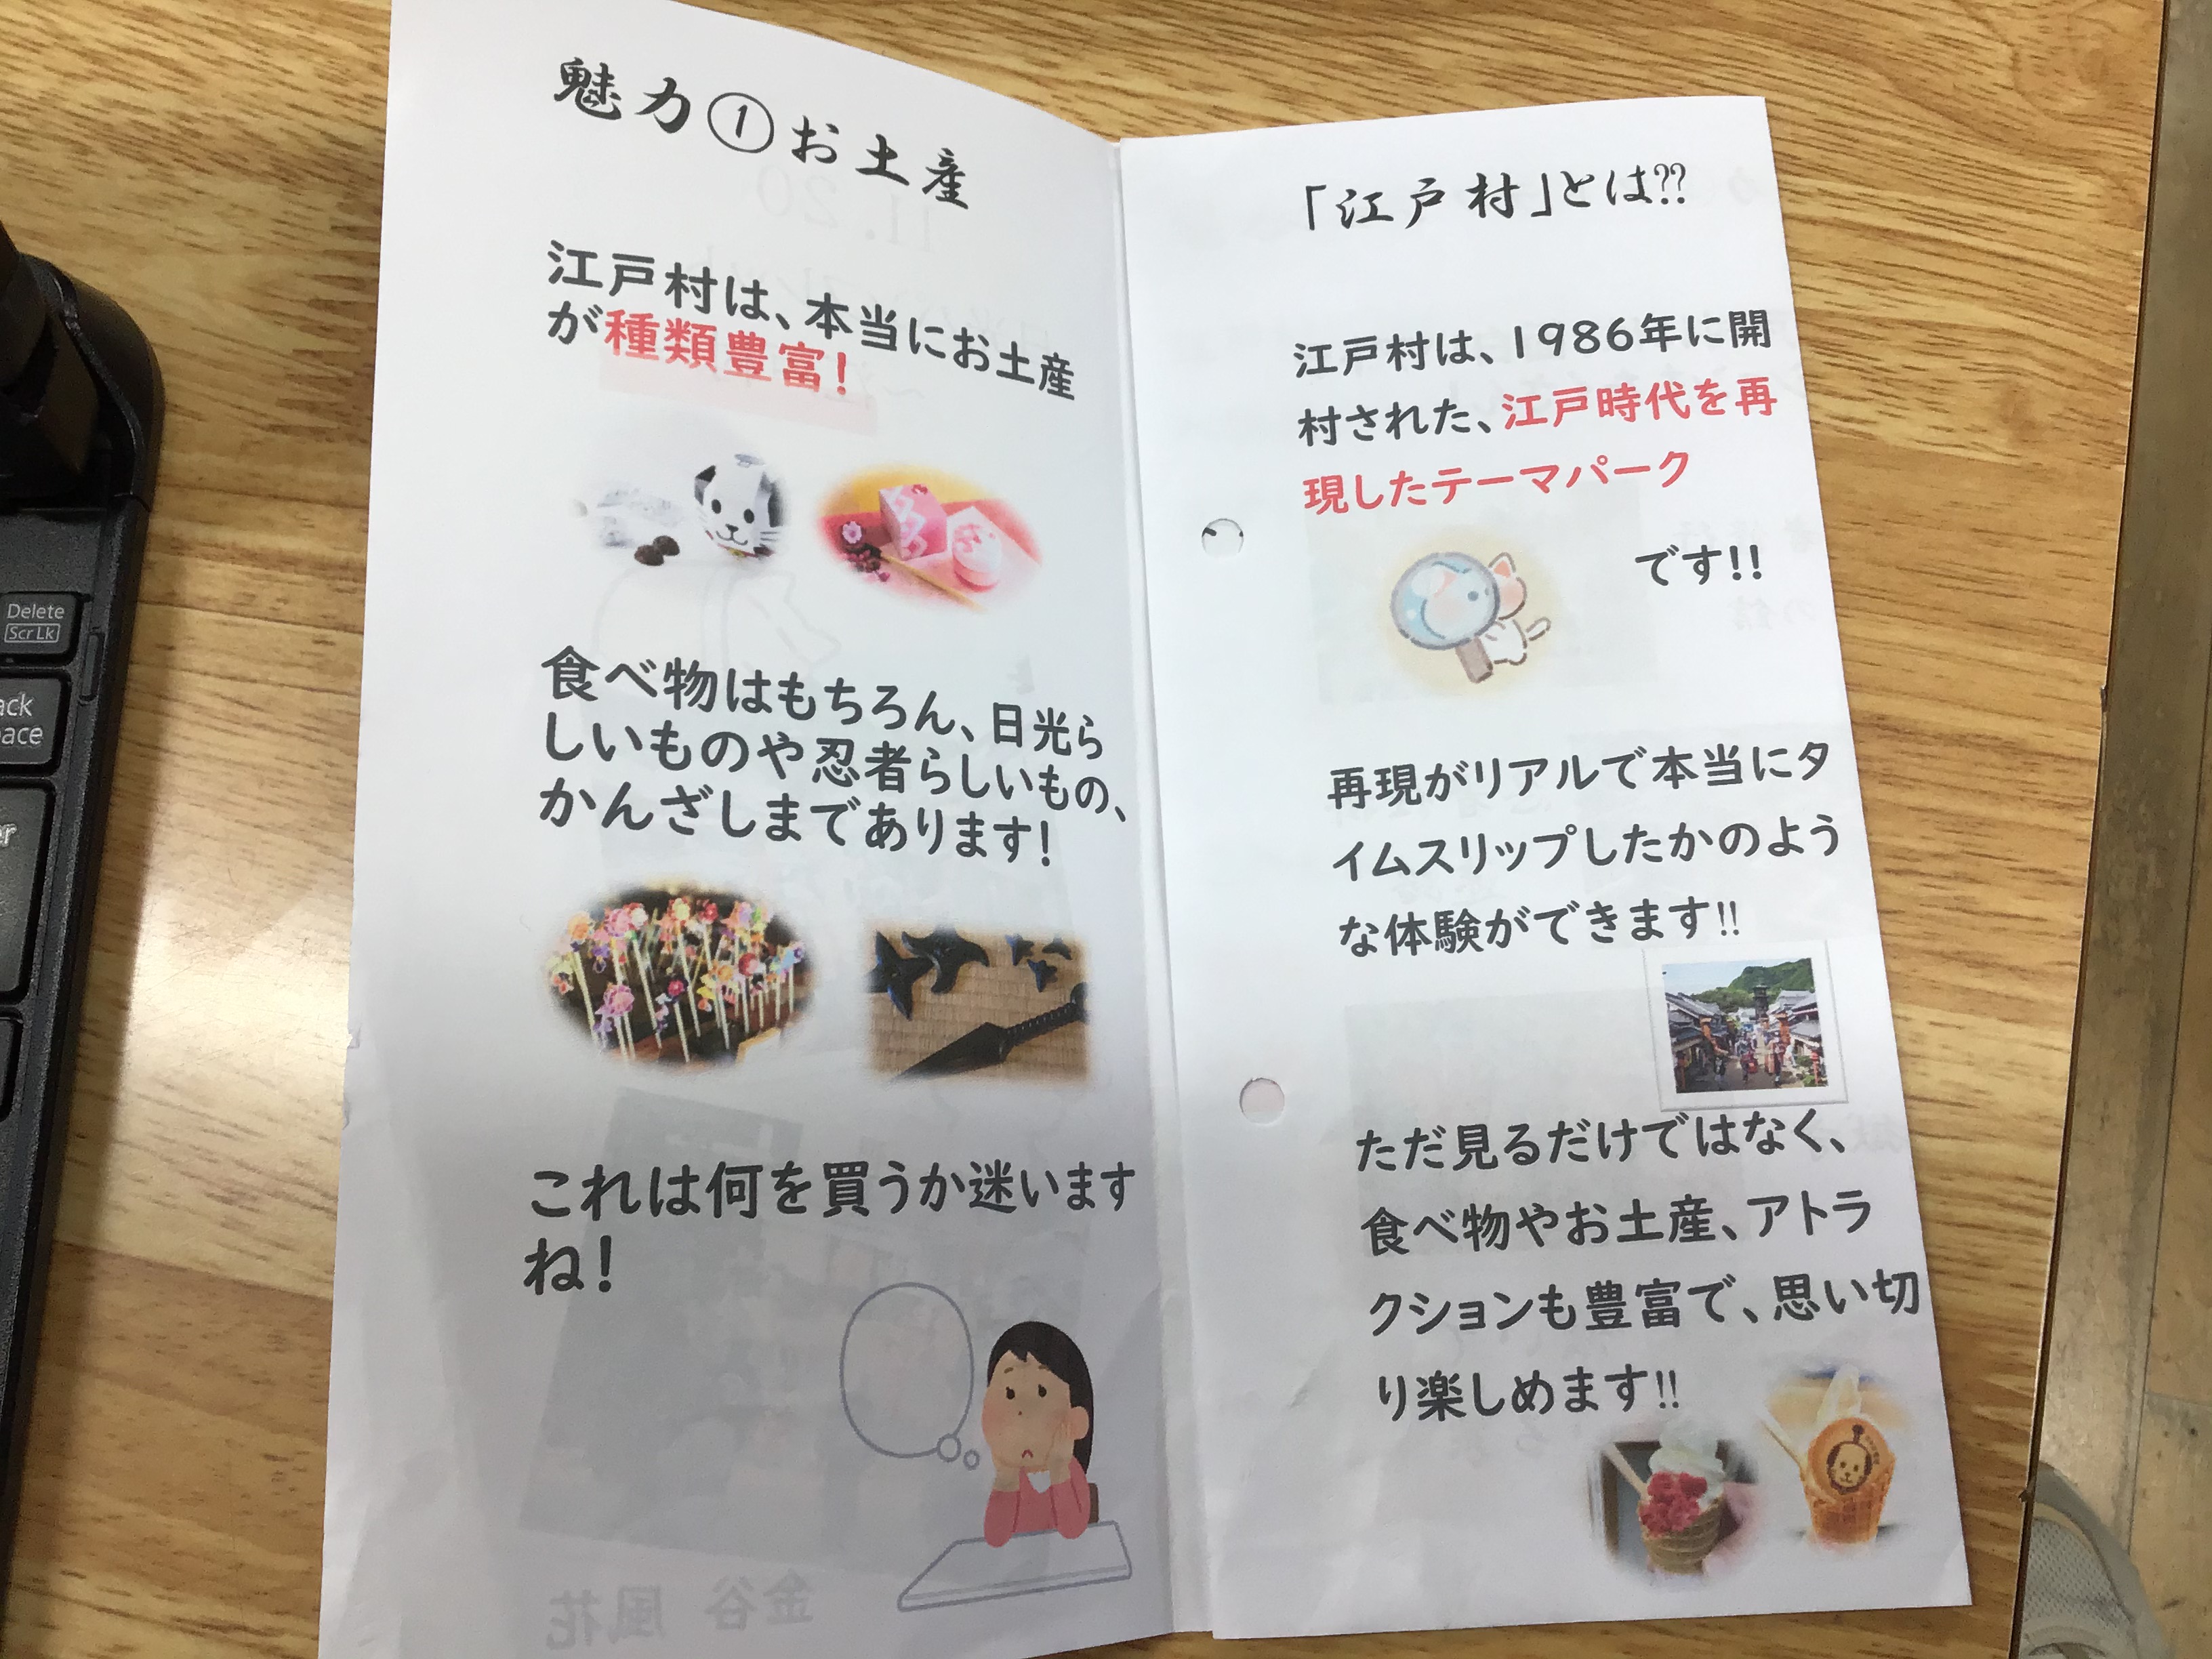 魅力①お土産
江戸村は、本当にお土産
が種類豊富!
食べ物はもちろん、日光ら
しいものや忍者らしいもの、
かんざしまであります!
これは何を買うか迷います
ね!
「江戸村」とは??
江戸村は、1986年に開
村された、江戸時代を再
現したテーマパーク
です!!
再現がリアルで本当にタ
イムスリップしたかのよう
な体験ができます!!
ただ見るだけではなく、
食べ物やお土産、アトラ
クションも豊富で、思い切
り楽しめます!!
Delete
Scr Lk
金谷 風花
11.20